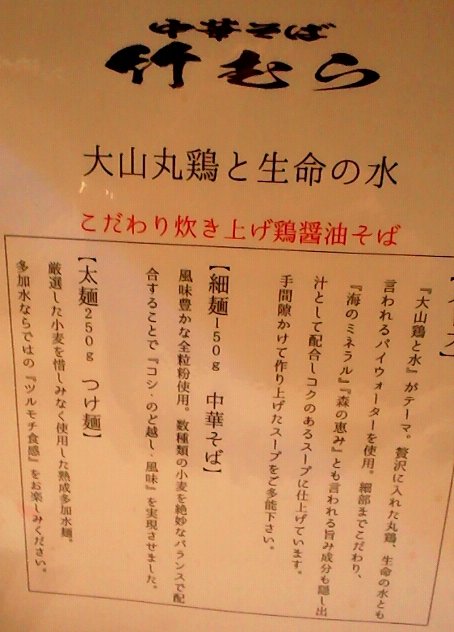 中華そば
竹むら
大山丸鶏と生命の水
こだわり炊き上げ鶏醤油そば
『大山鶏と水』がテーマ。贅沢に入れた丸鶏、生命の水とも
言われるパイウォーターを使用。細部までこだわり、
『海のミネラル』『森の恵み』とも言われる旨み成分も隠し出
汁として配合しコクのあるスープに仕上げています。
手間隙かけて作り上げたスープをご多能下さい。
【細麺150g 中華そば】
風味豊かな全粒粉使用。数種類の小麦を絶妙なバランスで配
合することで『コシ・のど越し・風味』を実現させました。
【太麺250g つけ麺】
厳選した小麦を惜しみなく使用した熟成多加水麺。
多加水ならではの『ツルモチ食感』をお楽しみください。